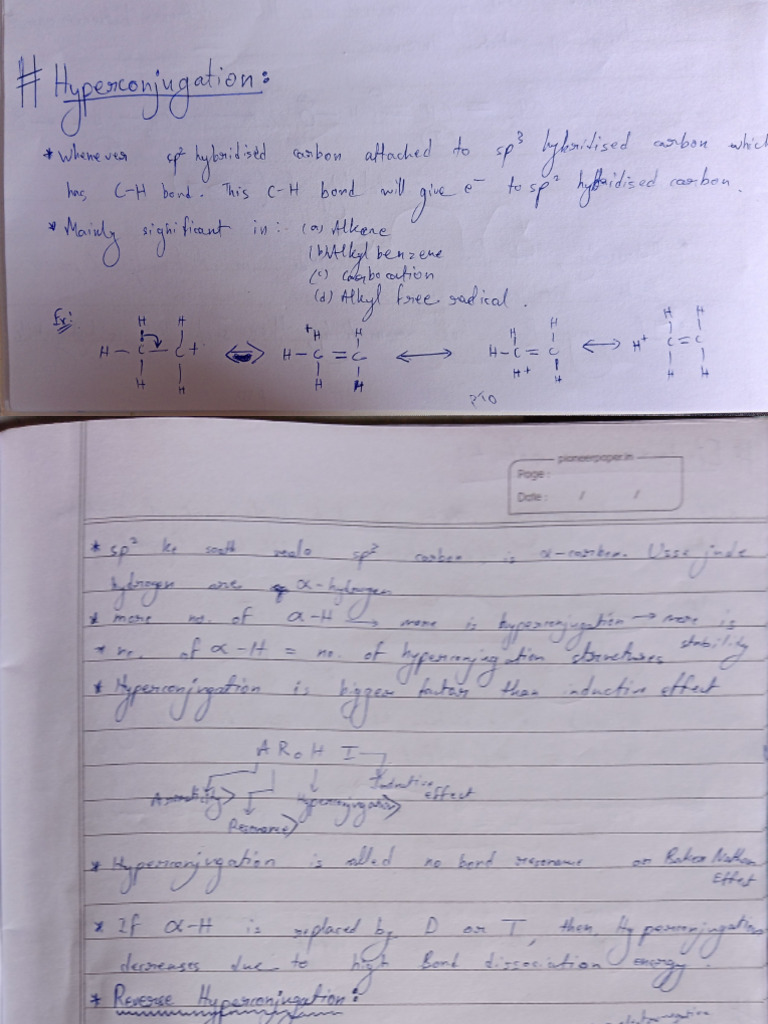 # Hyperconjugation:
* Whenever sp² hybridised carbon attached to sp³ hybridised carbon which
has C-H bond. This C-H bond will give e⁻ to sp² hybridised carbon.
* Mainly significant in:- (a) Alkene
(b) Alkyl benzene
(c) carbocation
(d) Alkyl free radical.
Ex:
H H +H H H H H H
H - C - C + ⟷ H - C = C ⟷ H - C = C ⟷ H⁺ C = C
H H H H H+ H H H
PTO
pioneerpaper.in
Page :
Date : / /
* sp² ke saath wala sp³ carbon is α-carbon. Usse jude
hydrogen are α-hydrogen
* more no. of α-H → more is hyperconjugation → more is
stability
* no. of α-H = no. of hyperconjugation structures
* Hyperconjugation is bigger factor than inductive effect
A Ro H I
Aromaticity > Resonance > Hyperconjugation > Inductive effect
* Hyperconjugation is called no bond resonance or Baker Nathan
Effect
* If α-H is replaced by D or T, then Hyperconjugation
decreases due to high Bond dissociation energy.
* Reverse Hyperconjugation: